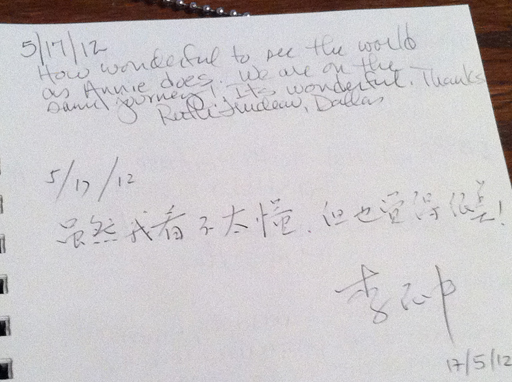 5/17/12
How wonderful to see the world
as Annie does. We are on the
same journey! It's wonderful. Thanks
Dallas
5/17/12
虽然我看不太懂，但也觉得很美!
李
17/5/12